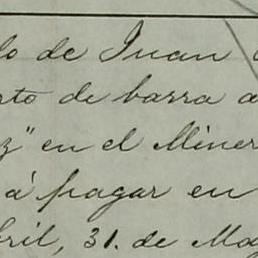 lo de Juan
rto de barra a
z" en el Miner
á pagar en
bril, 31. de Ma